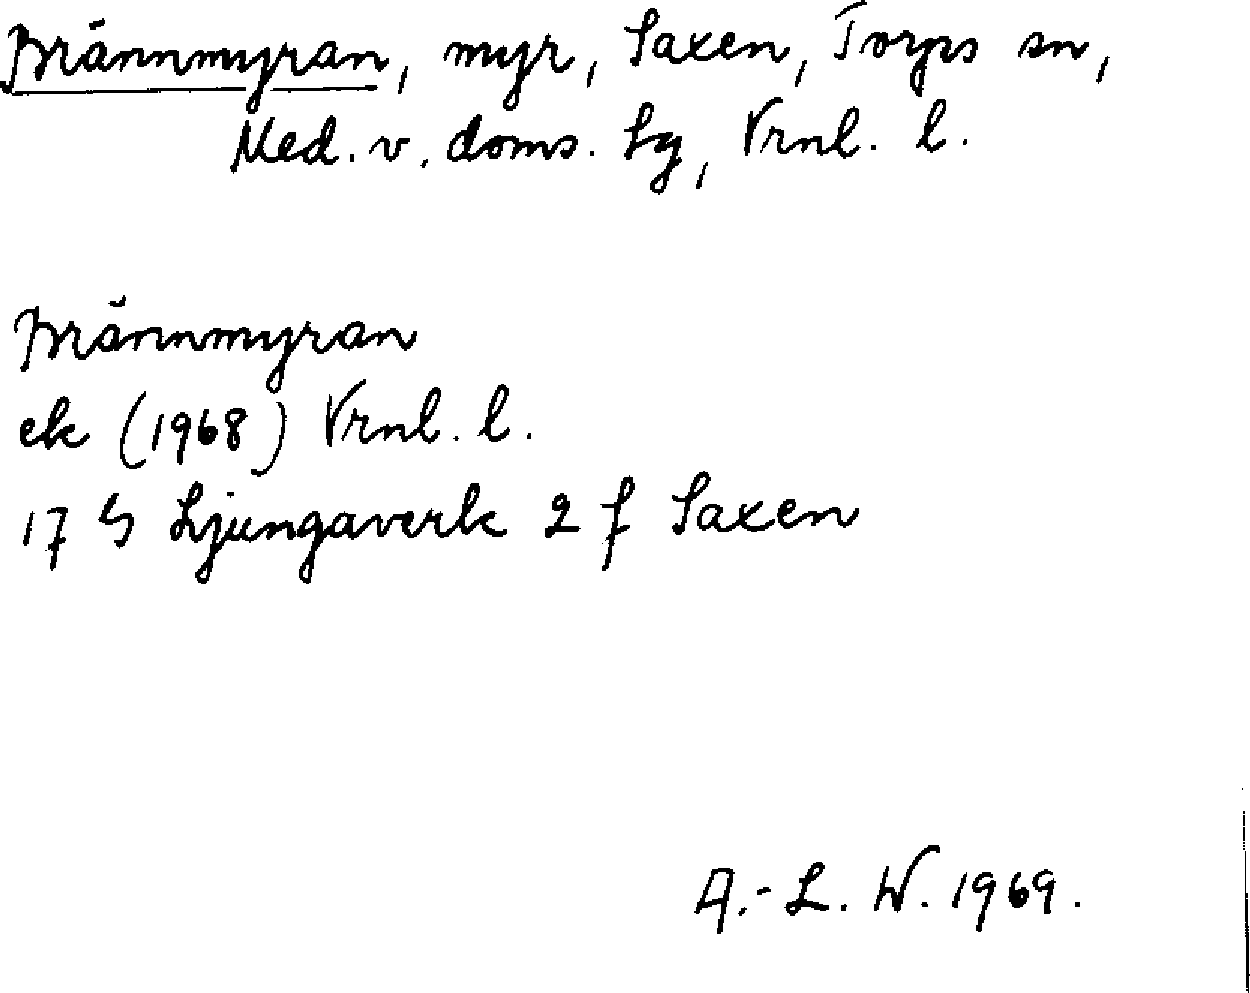 Brännmyran, myr, Saxen, Torps sn,
Med. v. doms. Lg, Vrnl. l.
Brännmyran
ek (1968) Vrnl. l.
17 G Ljungaverk 2 f Saxen
A.-L. W. 1969.